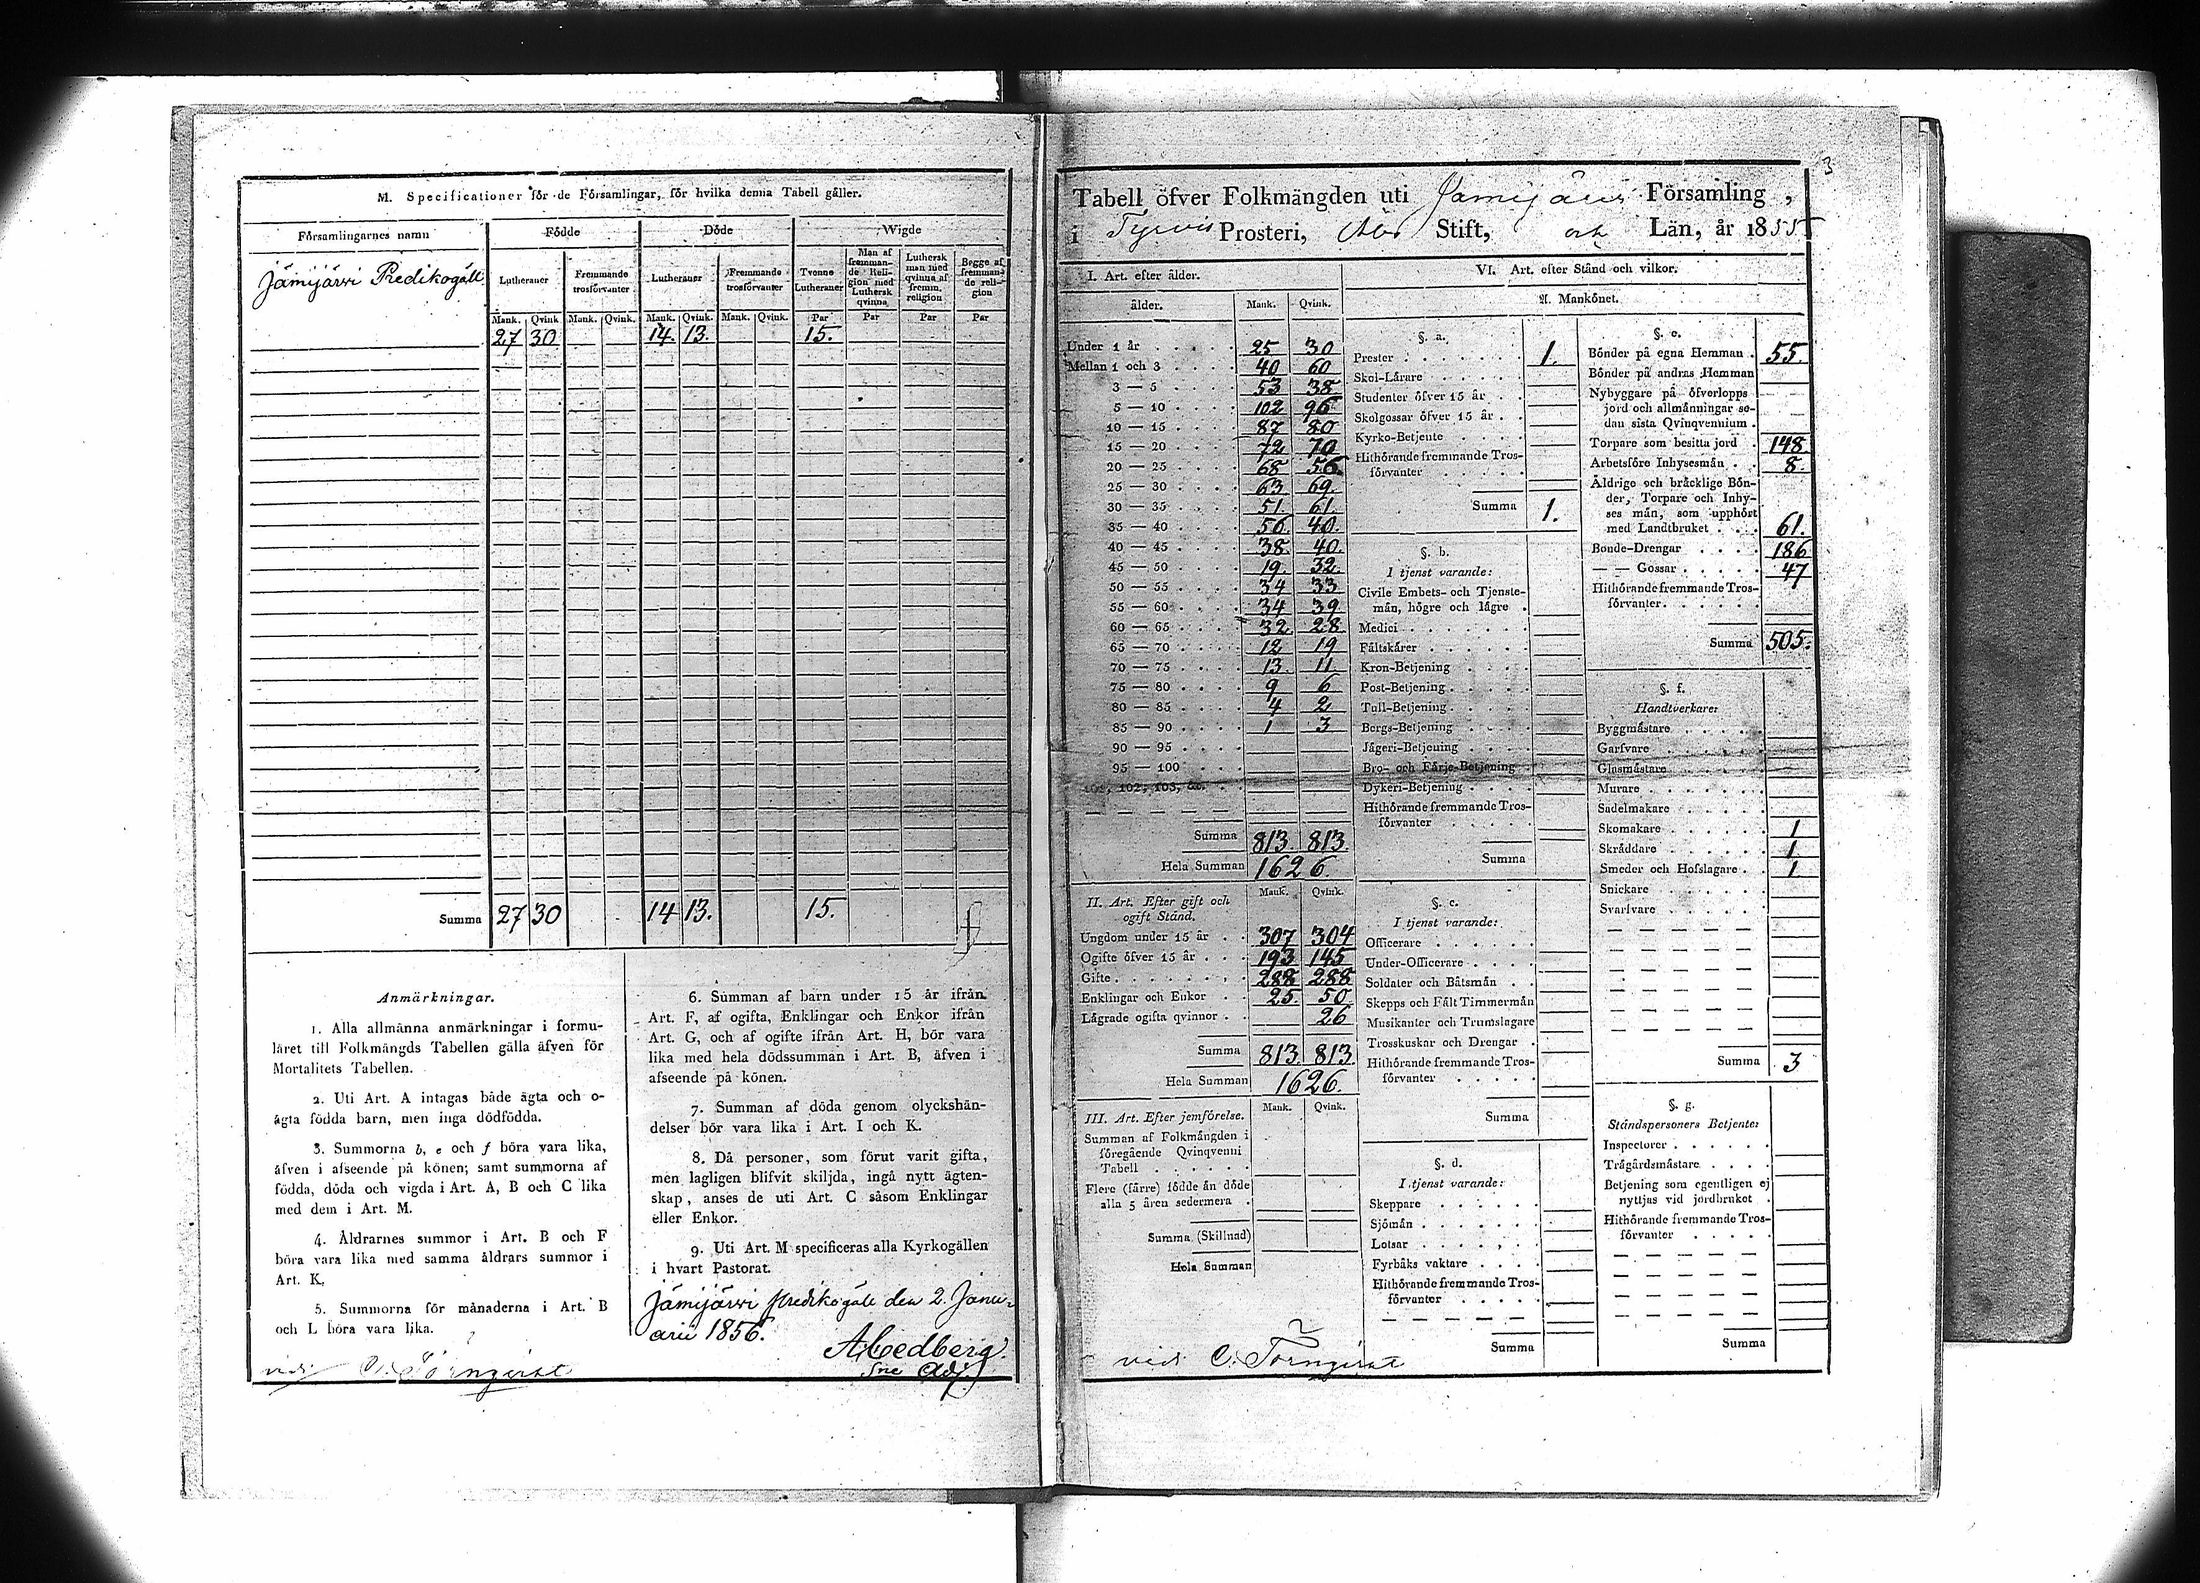 M. Specificationer för de Församlingar, för hvilka denna Tabell gäller.
Församlingarnes namn
Födde
Döde
Wigde
Lutheraner
Fremmande trosförvanter
Lutheraner
Fremmande trosförvanter
Tvenne Lutheraner
Man af fremmande Religion med Luthersk qvinna
Luthersk man med qvinna af fremm. religion
Begge af fremmande religion
Mank. Qvink. Mank. Qvink. Mank. Qvink. Mank. Qvink. Par Par Par Par
Jämijärwi Predikogäll
27 30 14. 13. 15.
Summa 27 30 14 13. 15.
Anmärkningar.
1. Alla allmänna anmärkningar i formu-
läret till Folkmängds Tabellen gälla äfven för
Mortalitets Tabellen.
2. Uti Art. A intagas både ägta och o-
ägta födda barn, men inga dödfödda.
3. Summorna b, e och f böra vara lika,
äfven i afseende på könen; samt summorna af
födda, döda och vigda i Art. A, B och C lika
med dem i Art. M.
4. Åldrarnes summor i Art. B och F
böra vara lika med samma åldrars summor i
Art. K.
5. Summorna för månaderna i Art. B
och L böra vara lika.
6. Summan af barn under 15 år ifrån
Art. F, af ogifta, Enklingar och Enkor ifrån
Art. G, och af ogifte ifrån Art. H, bör vara
lika med hela dödssumman i Art. B, äfven i
afseende på könen.
7. Summan af döda genom olyckshän-
delser bör vara lika i Art. I och K.
8. Då personer, som förut varit gifta,
men lagligen blifvit skiljda, ingå nytt ägten-
skap, anses de uti Art. C såsom Enklingar
eller Enkor.
9. Uti Art. M specificeras alla Kyrkogällen
i hvart Pastorat.
Jämijärwi predikogäll den 2. Janu-
arii 1856.
A. Cedberg.
Adj.
vidi C. Törnqvist
3
Tabell öfver Folkmängden uti Jämijärvi Församling,
i Tyrvis Prosteri, Åbo Stift, och Län, år 1855
I. Art. efter ålder.
ålder. Mank. Qvink.
Under 1 år 25 30
Mellan 1 och 3 40 60
3 — 5 53 38
5 — 10 102 96
10 — 15 87 80
15 — 20 72 70
20 — 25 68 56
25 — 30 63 69.
30 — 35 51. 61.
35 — 40 56 40.
40 — 45 38. 40.
45 — 50 19. 32.
50 — 55 34 33
55 — 60 34 39
60 — 65 32 28
65 — 70 12 19
70 — 75 13. 11.
75 — 80 9 6
80 — 85 4 2
85 — 90 1 3
90 — 95
95 — 100
101, 102, 103, &c.
Summa 813. 813.
Hela Summan 1626.
II. Art. Efter gift och
ogift Stånd.
Mank. Qvink.
Ungdom under 15 år 307 304
Ogifte öfver 15 år 193 145
Gifte 288 288
Enklingar och Enkor 25. 50
Lägrade ogifta qvinnor 26
Summa 813. 813.
Hela Summan 1626.
III. Art. Efter jemförelse.
Mank. Qvink.
Summan af Folkmängden i
föregående Qvinqvenni
Tabell
Flere (färre) födde än döde
alla 5 åren sedermera
Summa (Skillnad)
Hela Summan
vidi C. Törnqvist
VI. Art. efter Stånd och vilkor.
A. Mankönet.
§. a.
Prester 1.
Skol-Lärare
Studenter öfver 15 år
Skolgossar öfver 15 år
Kyrko-Betjente
Hithörande fremmande Tros-
förvanter
Summa 1.
§. b.
I tjenst varande:
Civile Embets- och Tjenste-
män, högre och lägre
Medici
Fältskärer
Kron-Betjening
Post-Betjening
Tull-Betjening
Bergs-Betjening
Jägeri-Betjening
Bro- och Färje-Betjening
Dykeri-Betjening
Hithörande fremmande Tros-
förvanter
Summa
§. c.
I tjenst varande:
Officerare
Under-Officerare
Soldater och Båtsmän
Skepps och Fält Timmermän
Musikanter och Trumslagare
Trosskuskar och Drengar
Hithörande fremmande Tros-
förvanter
Summa
§. d.
I tjenst varande:
Skeppare
Sjömän
Lotsar
Fyrbåks vaktare
Hithörande fremmande Tros-
förvanter
Summa
§. e.
Bönder på egna Hemman 55.
Bönder på andras Hemman
Nybyggare på öfverlopps
jord och allmänningar se-
dan sista Qvinqvennium
Torpare som besitta jord 148.
Arbetsföre Inhysesmän 8.
Åldrige och bräcklige Bön-
der, Torpare och Inhy-
ses män, som upphört
med Landtbruket 61.
Bonde-Drengar 186
— — Gossar 47
Hithörande fremmande Tros-
förvanter
Summa 505.
§. f.
Handtverkare:
Byggmästare
Garfvare
Glasmästare
Murare
Sadelmakare
Skomakare 1
Skräddare 1
Smeder och Hofslagare 1
Snickare
Svarfvare
Summa 3
§. g.
Ståndspersoners Betjente:
Inspectorer
Trägårdsmästare
Betjening som egentligen ej
nyttjas vid jordbruket
Hithörande fremmande Tros-
förvanter
Summa